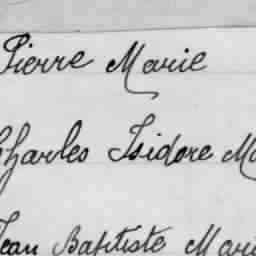 Pierre Marie
Charles Isidore M
Jean Baptiste Mari